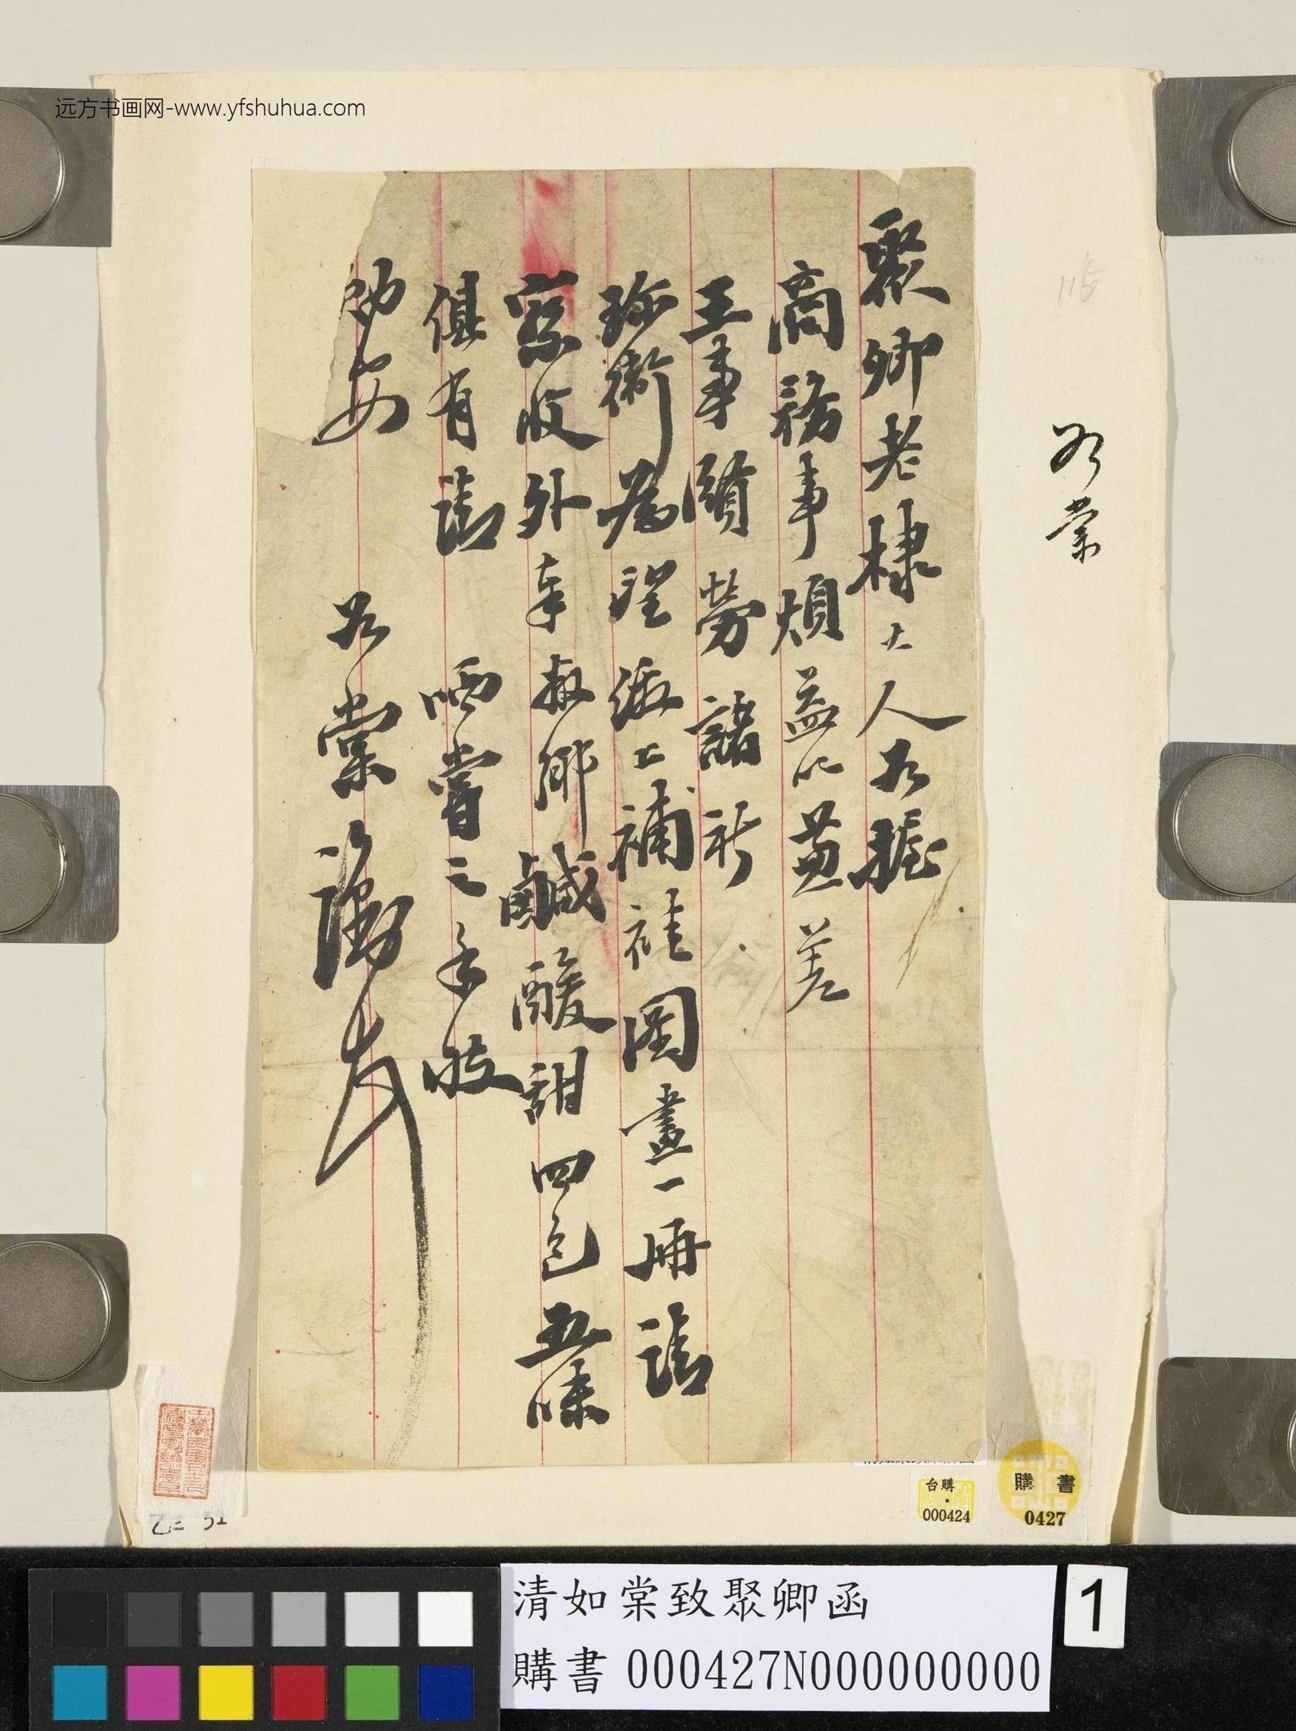 远方书画网-www.yfshuhua.com
聚卿老棣大人如握
商務事煩益以兼差
王事賢勞諸祈
珍衛為望繳上補袿圖畫一冊請
察收外奉椒鹹酸甜四包五味
俱有請 哂嘗之手啟
勛安 如棠
如棠
115
台購
000424
購書
0427
清如棠致聚卿函
購書 000427N000000000
1